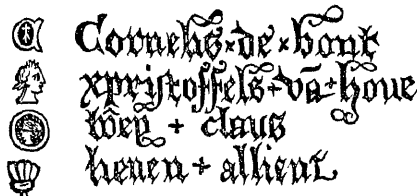 Cornelis × de × bont
xpristoffels + vā + hove
wey + claus
heven + allient